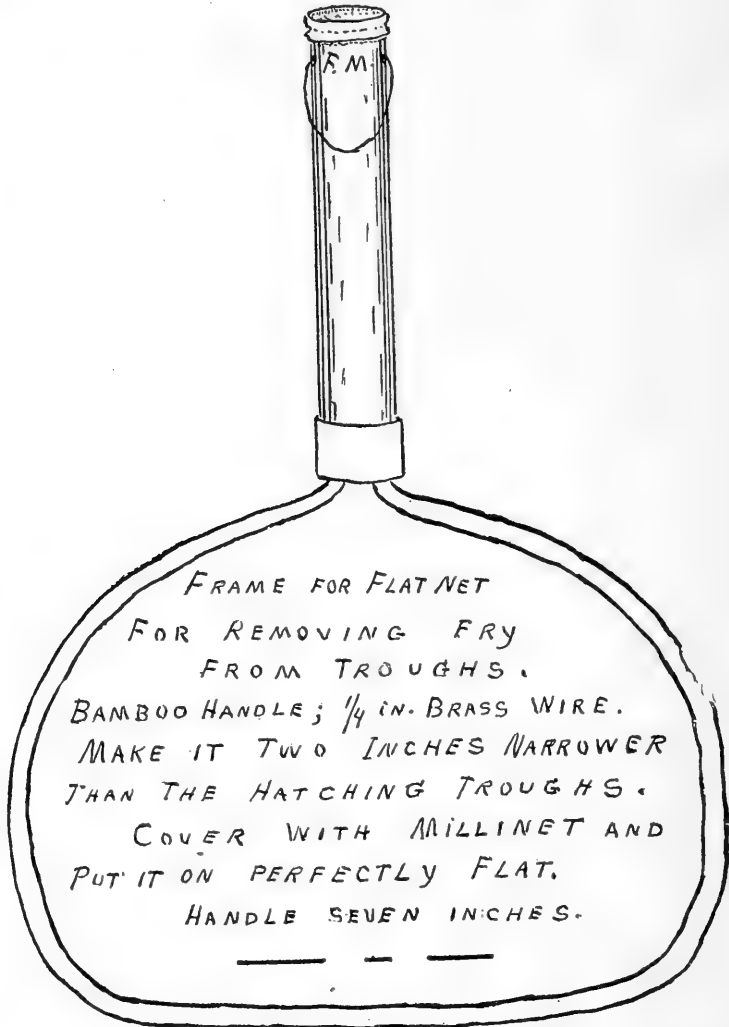 F.M.
FRAME FOR FLAT NET
FOR REMOVING FRY
FROM TROUGHS.
BAMBOO HANDLE; 1/4 IN. BRASS WIRE.
MAKE IT TWO INCHES NARROWER
THAN THE HATCHING TROUGHS.
COVER WITH MILLINET AND
PUT IT ON PERFECTLY FLAT.
HANDLE SEVEN INCHES.